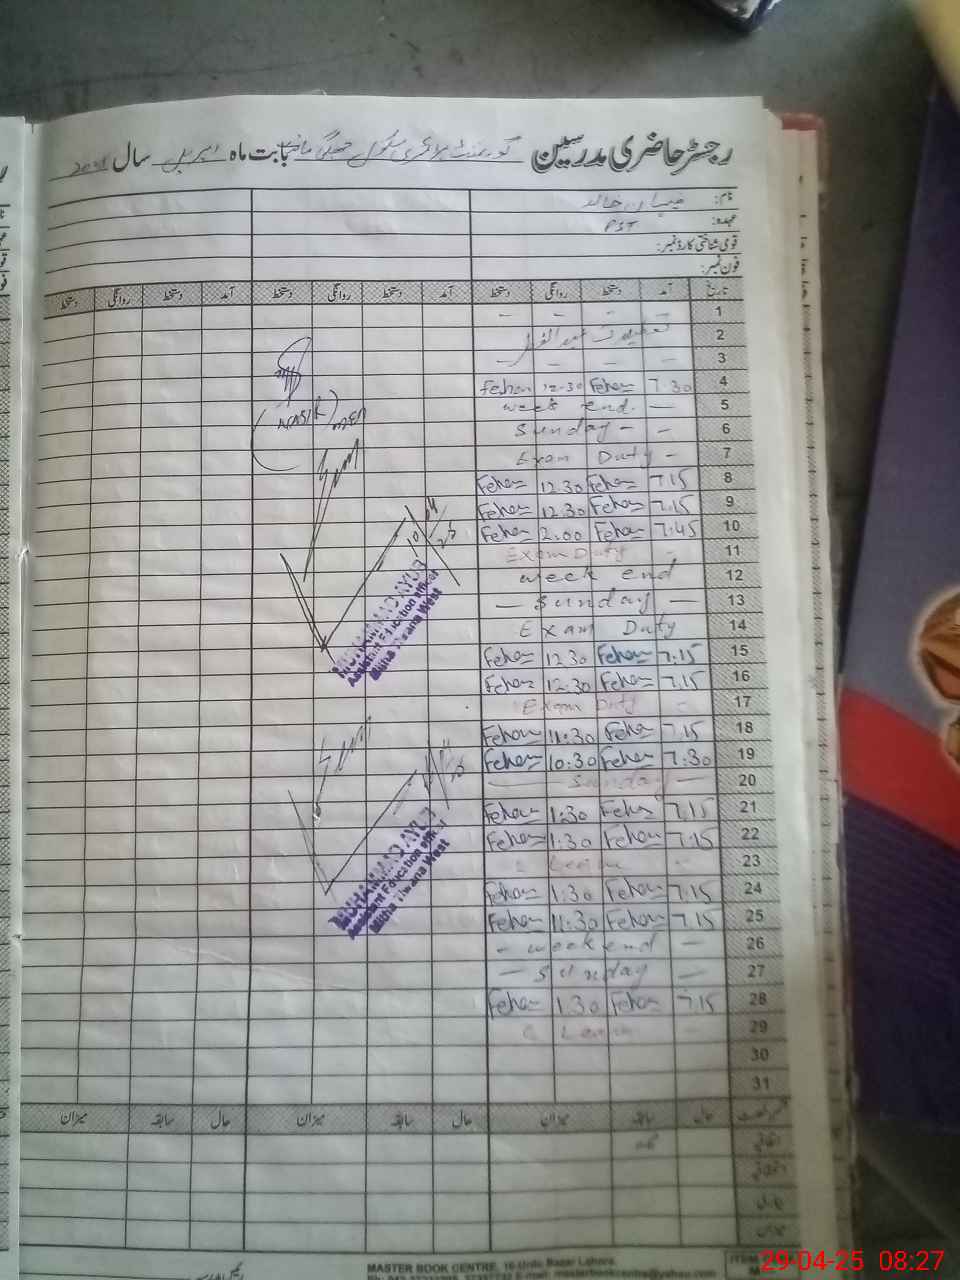 رجسٹر حاضری مدرسین گورنمنٹ پرائمری سکول بابت ماہ اپریل سال
نام: خالد
عہدہ: PST
قومی شناختی کارڈ نمبر:
فون نمبر:
تاریخ آمد دستخط روانگی دستخط آمد دستخط روانگی دستخط آمد دستخط روانگی دستخط
1 – – –
2 تعطیلات عید الفطر
3 – – – –
4 7.30 Fehan 12.30 Fehan
5 week end. —
6 Sunday – –
7 Exam Duty –
8 7.15 Fehan 12.30 Fehan
9 7.15 Fehan 12.30 Fehan
10 7.45 Fehan 2.00 Fehan
11 Exam Duty –
12 week end
13 — Sunday —
14 Exam Duty
15 7.15 Fehan 12.30 Fehan
16 7.15 Fehan 12.30 Fehan
17 Exam Duty –
18 7.15 Fehan 11.30 Fehan
19 7.30 Fehan 10.30 Fehan
20 — Sunday —
21 7.15 Fehan 1.30 Fehan
22 7.15 Fehan 1.30 Fehan
23 Leave –
24 7.15 Fehan 1.30 Fehan
25 7.15 Fehan 11.30 Fehan
26 – week end –
27 — Sunday —
28 7.15 Fehan 1.30 Fehan
29 C Leave
30
31
(NASIR)
MUHAMMAD AYUB
Assistant Education officer
Mitha Tiwana West
MUHAMMAD AYUB
Assistant Education officer
Mitha Tiwana West
حال سابقہ میزان حال سابقہ میزان حال سابقہ میزان
اتفاقیہ
MASTER BOOK CENTRE, 16-Urdu Bazar Lahore
29-04-25 08:27